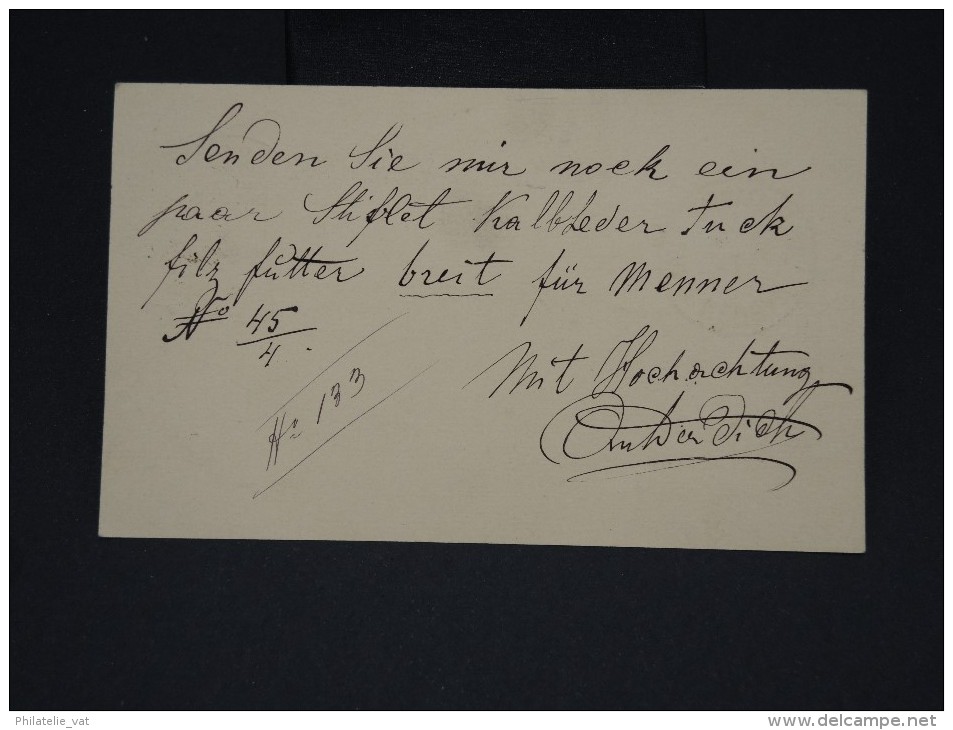 Senden Sie mir nock ein
paar Stiflet Kalbleder Tuck
filz futter breit für Menner
No 45/4.
No 133
Mit Hochachtung
Philatelie_vat
www.delcampe.net